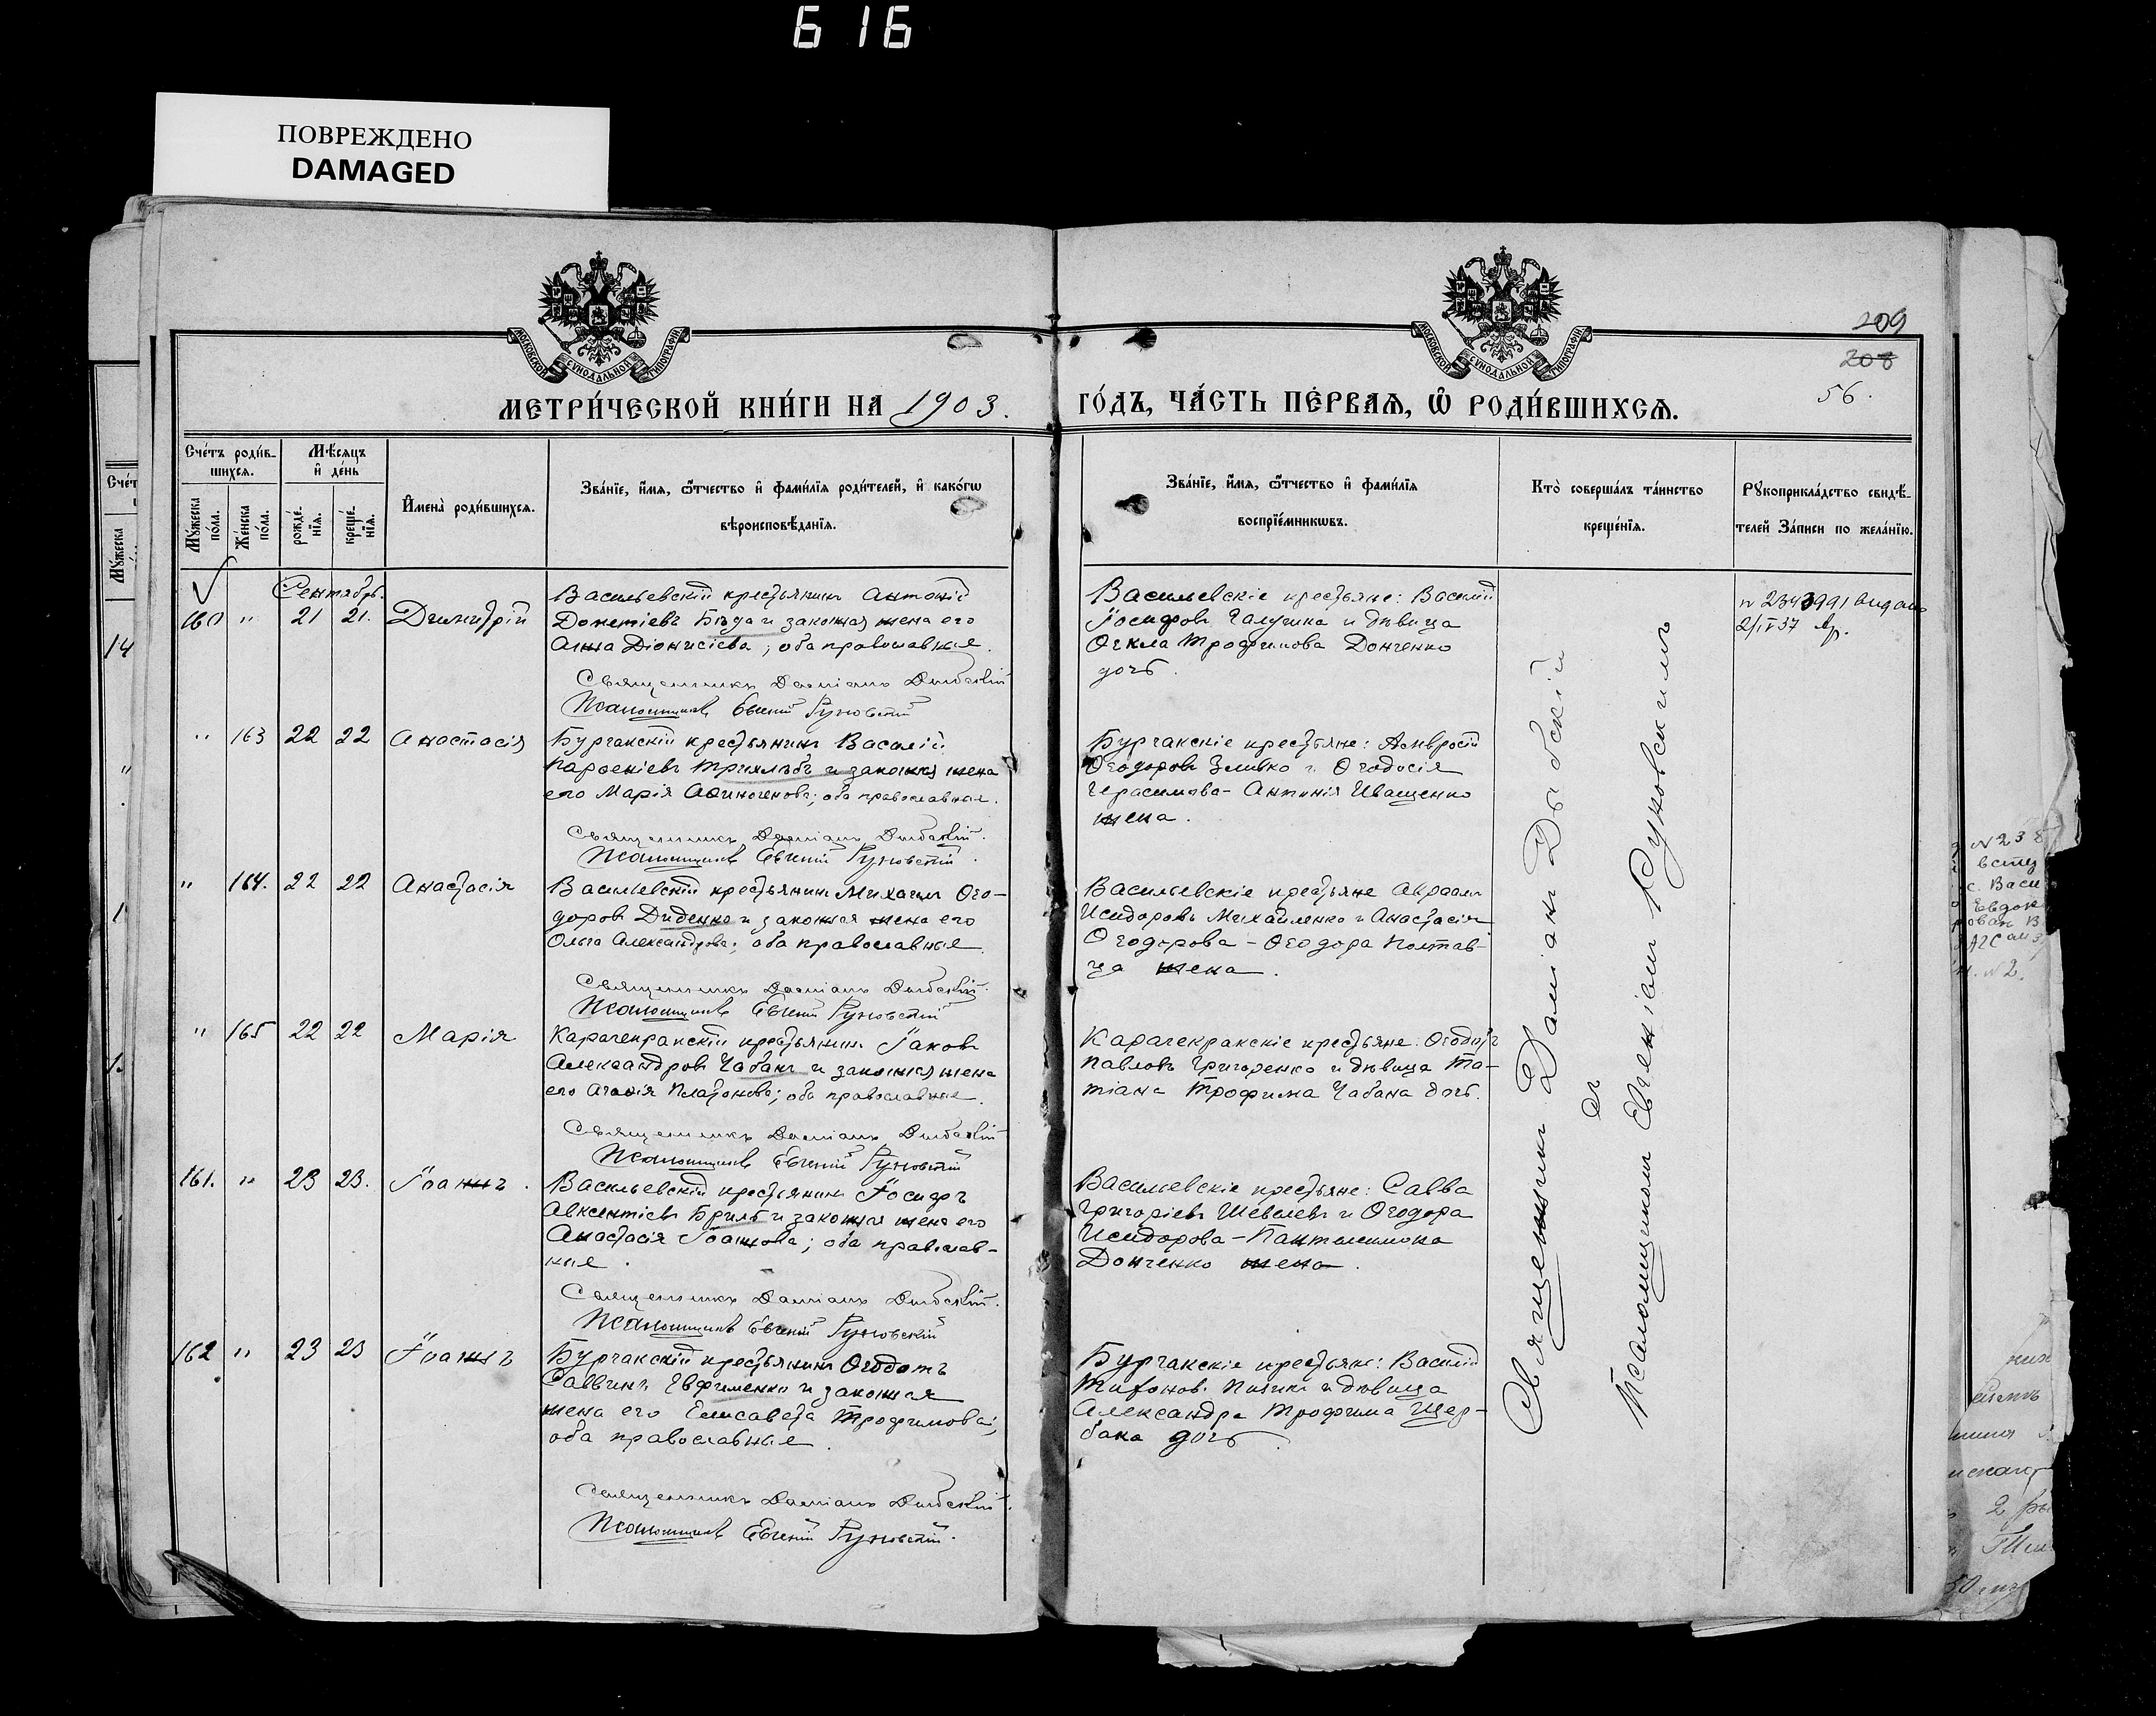 616
ПОВРЕЖДЕНО
DAMAGED
МОСКОВСКОЙ СѴНОДАЛЬНОЙ ТИПОГРАФІИ
МОСКОВСКОЙ СѴНОДАЛЬНОЙ ТИПОГРАФІИ
209
208
56.
МЕТРИ́ЧЕСКОЙ КНИ́ГИ НА 1903. ГО́ДЪ, ЧА́СТЬ ПЕ́РВАѦ, Ѡ҆ РОДИ́ВШИХСѦ.
Сче́тъ роди́в-
шихсѧ.
Мꙋ́жеска
по́ла.
Же́нска
по́ла.
Мѣ́сѧцъ
и҆ де́нь
рожде́-
нїѧ.
креще́-
нїѧ.
И҆мена̀ роди́вшихсѧ.
Зва́нїе, и҆́мѧ, ѻ҆́тчество и҆ фами́лїѧ роди́телей, и҆ како́гѡ
вѣроисповѣ́данїѧ.
Зва́нїе, и҆́мѧ, ѻ҆́тчество и҆ фами́лїѧ
воспрїе́мникѡвъ.
Кто̀ соверша́лъ та́инство
креще́нїѧ.
Рꙋкоприкла́дство свидѣ́-
телей за́писи по жела́нїю.
Сентябрь.
160 " 21 21. Димитрій
Васильевскій крестьянинъ Антоній
Дометіевъ Бѣда и законная жена его
Анна Діонисіева; оба православные.
Священникъ Даміанъ Дыбскій
Псаломщикъ Евгеній Руновскій
Васильевскіе крестьяне: Василій
Іосифовъ Галушка и дѣвица
Ѳекла Трофимова Донченко
дочь.
2/IV 37
" 163 22 22 Анастасія
Бурчакскій крестьянинъ Василій
Парѳеніевъ и законная жена
его Марія Аѳиногенова; оба православные.
Священникъ Даміанъ Дыбскій.
Псаломщикъ Евгеній Руновскій.
Бурчакскіе крестьяне: Амвросій
Ѳеодоровъ и Ѳеодосія
Герасимова - Антонія Иващенко
жена.
" 164. 22 22 Анастасія
Васильевскій крестьянинъ Михаилъ Ѳео-
доровъ Диденко и законная жена его
Ольга Александрова; оба православные.
Священникъ Даміанъ Дыбскій.
Псаломщикъ Евгеній Руновскій
Васильевскіе крестьяне Авраамъ
Исидоровъ Михайленко и Анастасія
Ѳеодорова - Ѳеодора Полтав-
ца жена.
" 165 22 22 Марія
Карачекракскій крестьянинъ Іаковъ
Александровъ Чабанъ и законная жена
его Агаѳія Платонова; оба православные.
Священникъ Даміанъ Дыбскій
Псаломщикъ Евгеній Руновскій
Карачекракскіе крестьяне: Ѳеодотъ
Павловъ Григоренко и дѣвица Та-
тіана Трофима Чабана дочь.
161. " 23 23. Іоаннъ.
Васильевскій крестьянинъ Іосифъ
Авксентіевъ Бриль и законная жена его
Анастасія Іоаннова; оба православ-
ные.
Священникъ Даміанъ Дыбскій.
Псаломщикъ Евгеній Руновскій
Васильевскіе крестьяне: Савва
Григоріевъ Шевелевъ и Ѳеодора
Исидорова - Пантелеимона
Донченко жена.
162 " 23 23 Іоаннъ
Бурчакскій крестьянинъ Ѳеодотъ
Саввинъ Евфименко и законная
жена его Елисавета Трофимова;
оба православные.
Священникъ Даміанъ Дыбскій.
Псаломщикъ Евгеній Руновскій.
Бурчакскіе крестьяне: Василій
Тихоновъ и дѣвица
Александра Трофима Щер-
бака дочь.
Священникъ Даміанъ Дыбскій
съ
Псаломщикомъ Евгеніемъ Руновскимъ